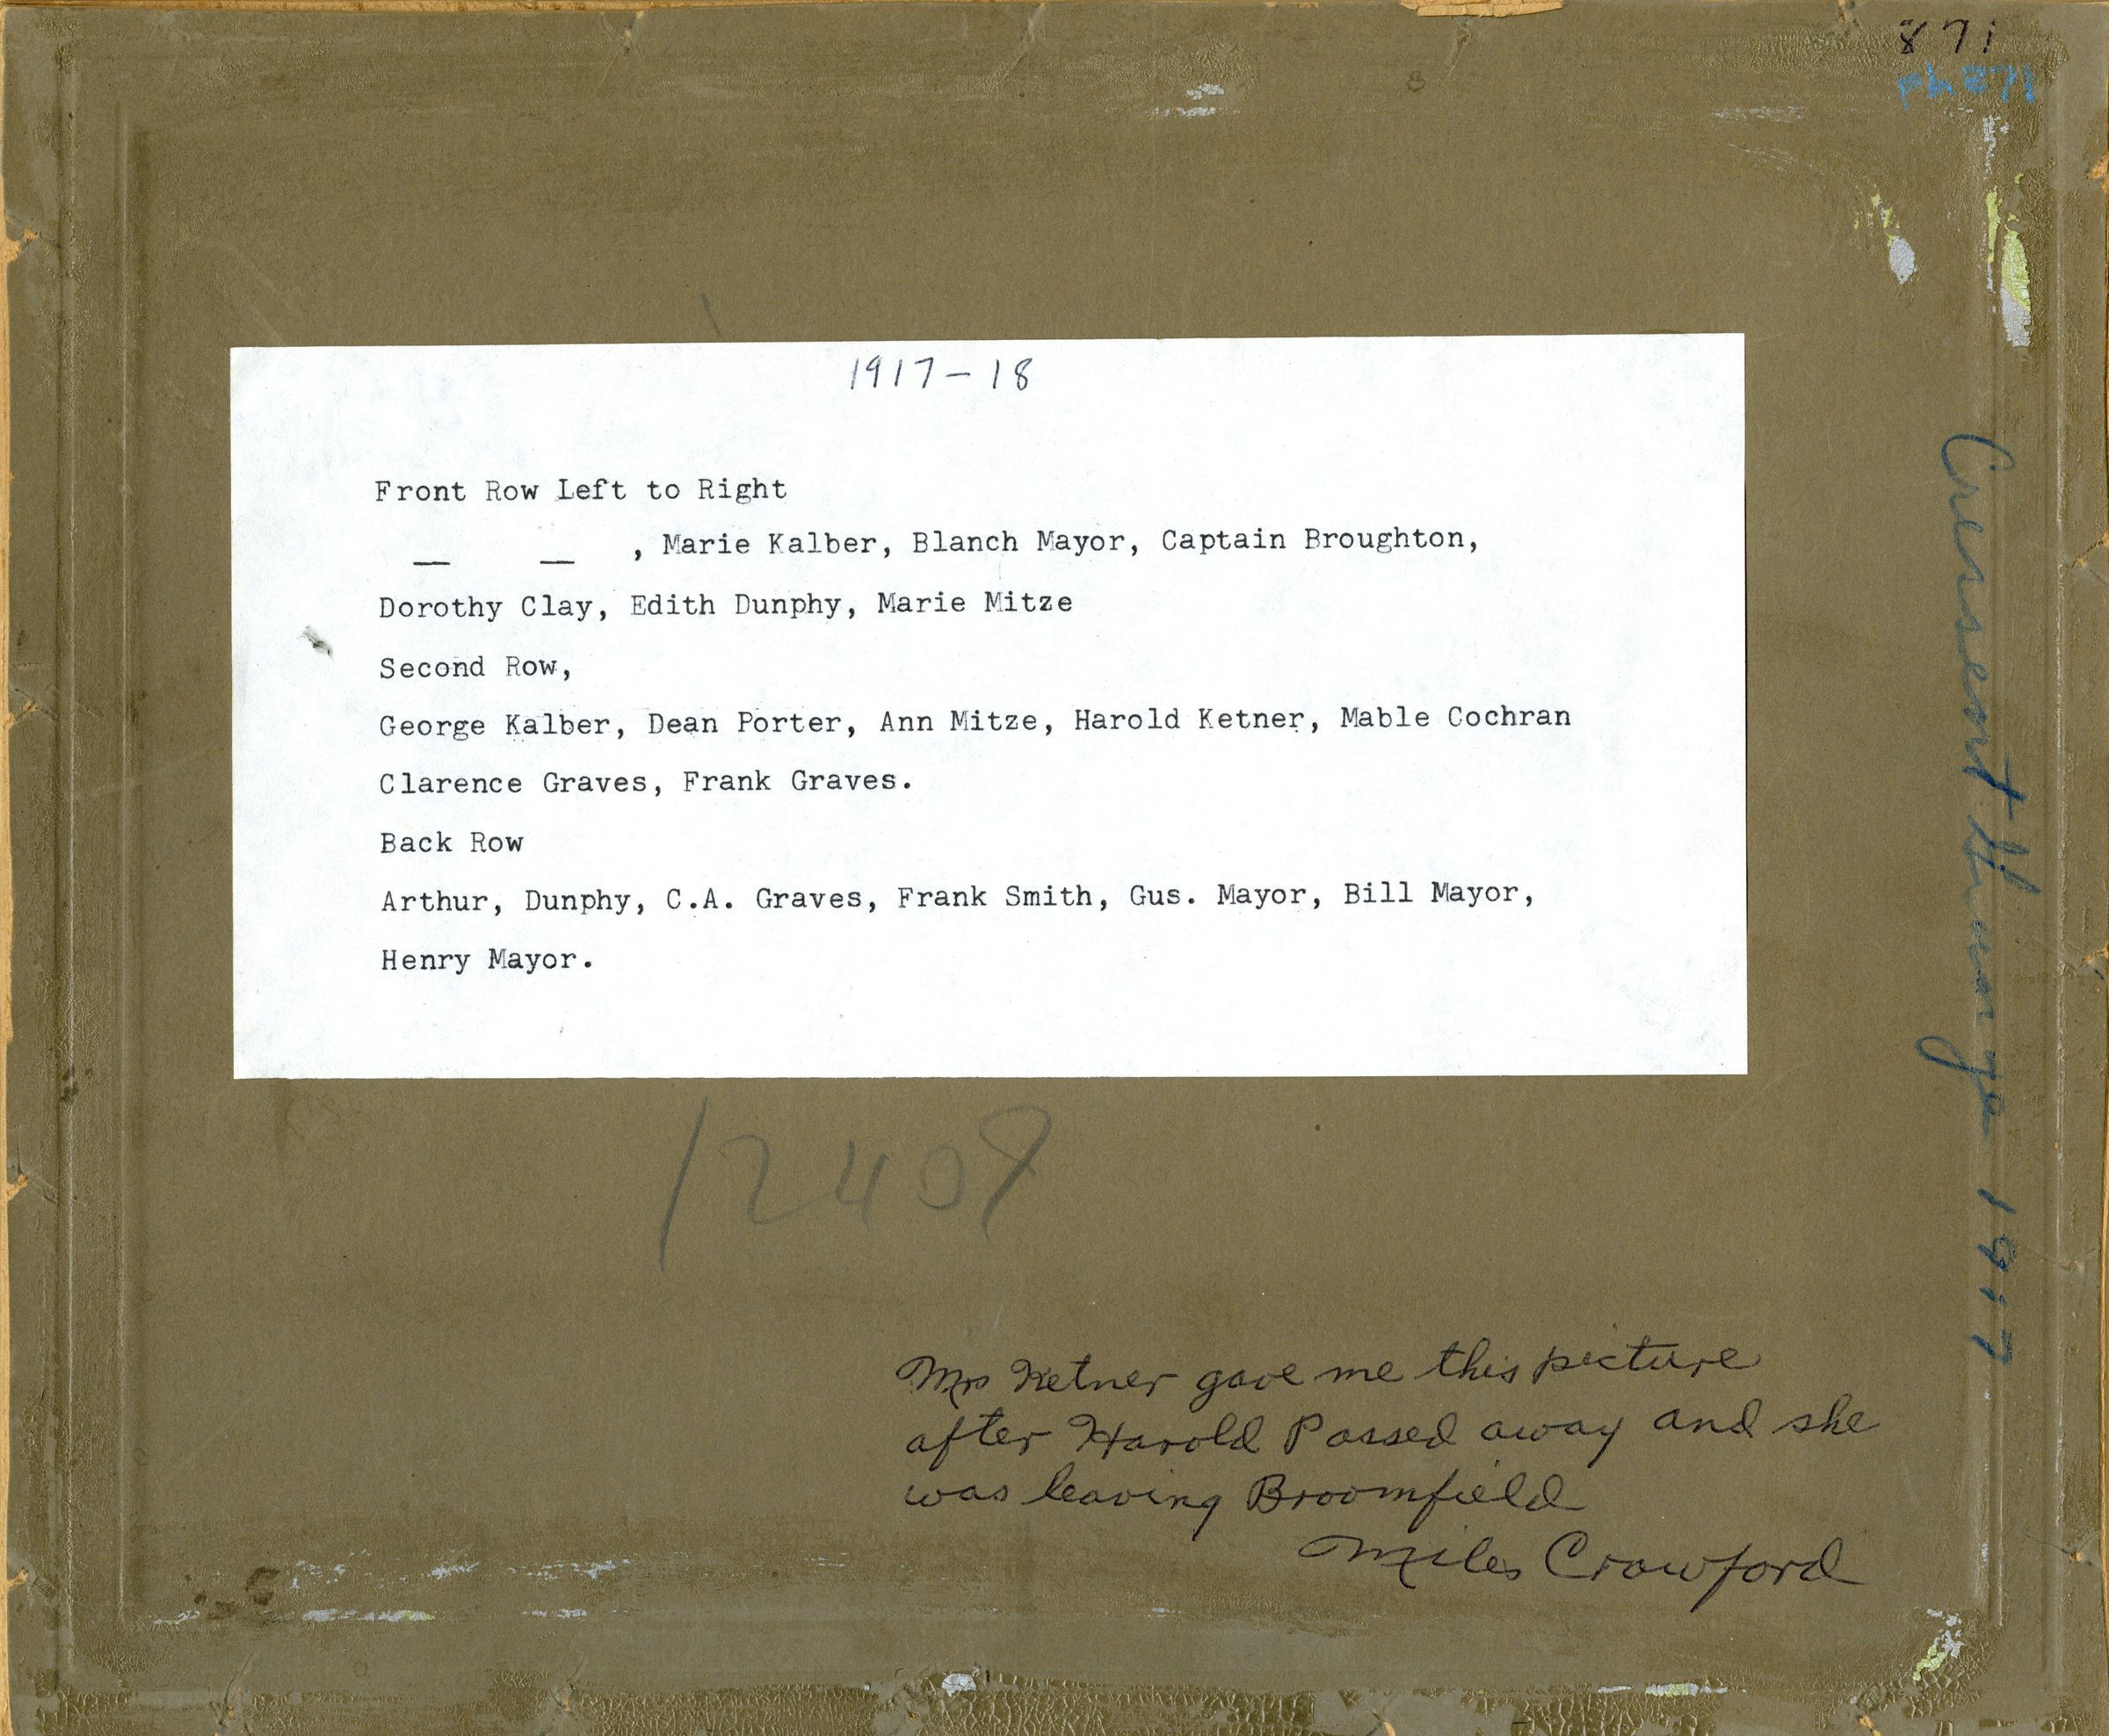 871
Ph 871
1917-18
Front Row Left to Right
__ __ , Marie Kalber, Blanch Mayor, Captain Broughton,
Dorothy Clay, Edith Dunphy, Marie Mitze
Second Row,
George Kalber, Dean Porter, Ann Mitze, Harold Ketner, Mable Cochran
Clarence Graves, Frank Graves.
Back Row
Arthur, Dunphy, C.A. Graves, Frank Smith, Gus. Mayor, Bill Mayor,
Henry Mayor.
12409
Mrs Ketner gave me this picture
after Harold Passed away and she
was leaving Broomfield
Miles Crawford
1917